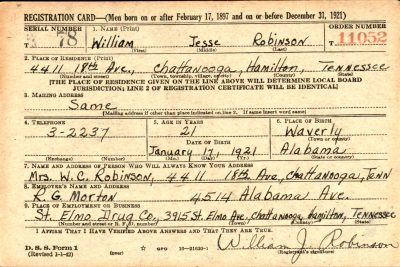 REGISTRATION CARD—(Men born on or after February 17, 1897 and on or before December 31, 1921)
SERIAL NUMBER 1. NAME (Print) ORDER NUMBER
T 78 William Jesse Robinson T 11052
(First) (Middle) (Last)
2. PLACE OF RESIDENCE (Print)
4411 18th Ave., Chattanooga, Hamilton, Tennessee
(Number and street) (Town, township, village, or city) (County) (State)
[THE PLACE OF RESIDENCE GIVEN ON THE LINE ABOVE WILL DETERMINE LOCAL BOARD
JURISDICTION; LINE 2 OF REGISTRATION CERTIFICATE WILL BE IDENTICAL]
3. MAILING ADDRESS
Same
[Mailing address if other than place indicated on line 2. If same insert word same]
4. TELEPHONE 5. AGE IN YEARS 6. PLACE OF BIRTH
3-2237 21 Waverly
DATE OF BIRTH (Town or county)
January 17, 1921 Alabama
(Exchange) (Number) (Mo.) (Day) (Yr.) (State or country)
7. NAME AND ADDRESS OF PERSON WHO WILL ALWAYS KNOW YOUR ADDRESS
Mrs. W.C. Robinson, 4411 18th Ave, Chattanooga, Tenn
8. EMPLOYER'S NAME AND ADDRESS
R. G. Morton 4514 Alabama Ave.
9. PLACE OF EMPLOYMENT OR BUSINESS
St. Elmo Drug Co., 3915 St. Elmo Ave, Chattanooga, Hamilton, Tennessee
(Number and street or R. F. D. number) (Town) (County) (State)
I AFFIRM THAT I HAVE VERIFIED ABOVE ANSWERS AND THAT THEY ARE TRUE.
D. S. S. Form 1
(Revised 1-1-42) GPO 16—21630-1 William J. Robinson
(Registrant's signature)